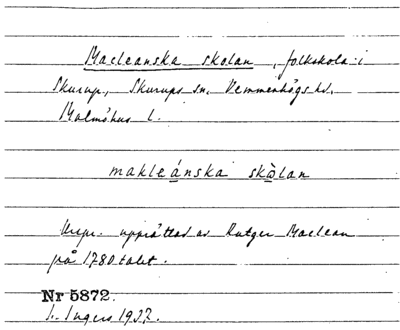 Macleanska skolan, folkskola i
Skurup, Skurups sn, Vemmenhögs hd,
Malmöhus l.
makleánska skòlan
Urspr. upprättad av Rutger Maclean
på 1780 talet.
Nr 5872.
Ingers 1927.